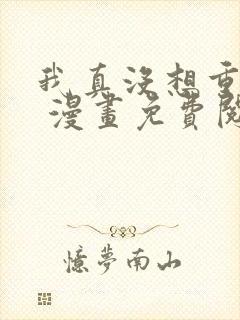 我真沒想重
漫畫免費閱
憶夢南山